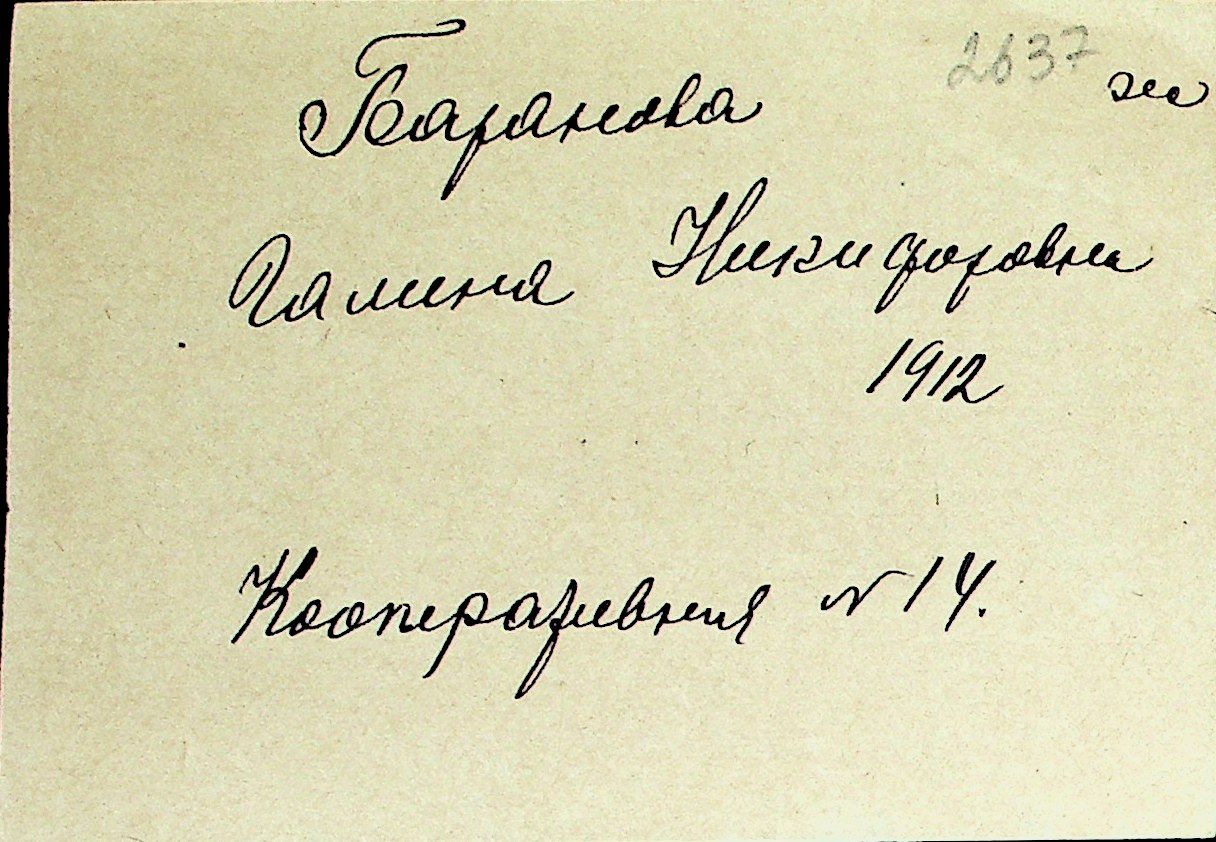 2637 ж
Баранова
Галина Никифоровна
1912
Кооперативная N 14.